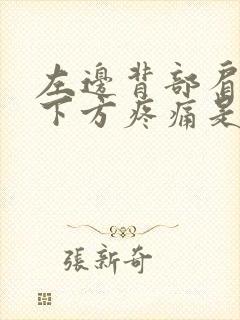 左邊背部肩
下方疼痛是
張新奇